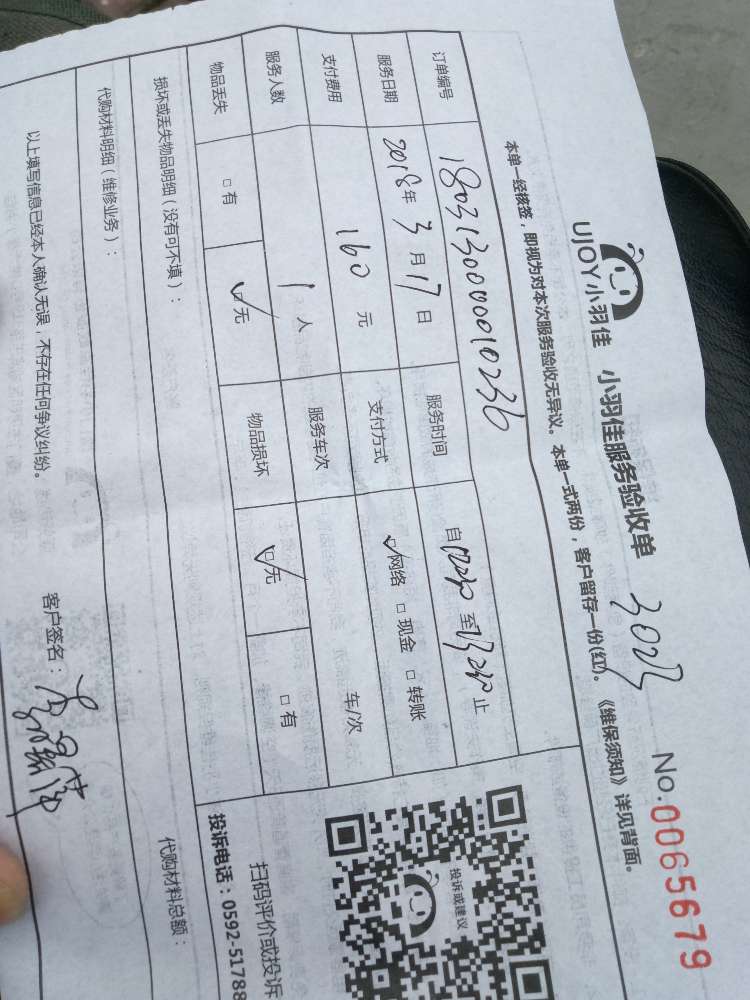 UJOY小羽佳 小羽佳服务验收单 3023 No.0065679
本单一经核签，即视为对本次服务验收无异议。本单一式两份，客户留存一份(红)。《维保须知》详见背面。
订单编号 180313000010236
服务日期 2018年3月17日 服务时间 自 至 止
支付费用 160元 支付方式 网络 现金 转账
服务人数 1人 服务车次 车/次
物品丢失 □有 ☑无 物品损坏 ☑无 □有
损坏或丢失物品明细（没有可不填）：
代购材料明细（维修业务）：
代购材料总额：
以上填写信息已经本人确认无误，不存在任何争议纠纷。 客户签名：
投诉或建议
扫码评价或投诉
投诉电话：0592-51788